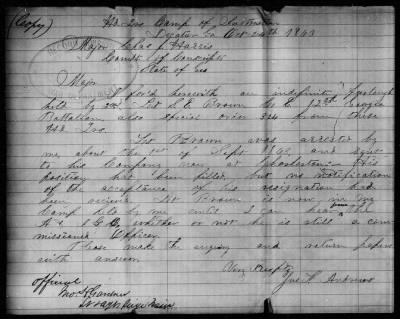 (Copy)
Hd. Qrs Camp of Instruction
Decatur Ga Oct 24th 1863
Major Chas J Harris
Comdt of Conscripts
State of Geo
Major
I forward herewith an indefinite furlough
held by 2nd Lt S. E. Brown Co E 12th Georgia
Battalion, also special order 324 from these
Hd. Qrs.
Lt Brown was arrested by
me about the 1st of Sept and sent
to his Company now at Charleston - His
position had been filled, but no notification
of the acceptance of his resignation had
been received Lt Brown is now in my
Camp held by me until I can hear from
A & I G O whether or not he is still a com
missioned Officer
Please make the enquiry and return papers
with answer
Very Respty
Jno F Andrews
official